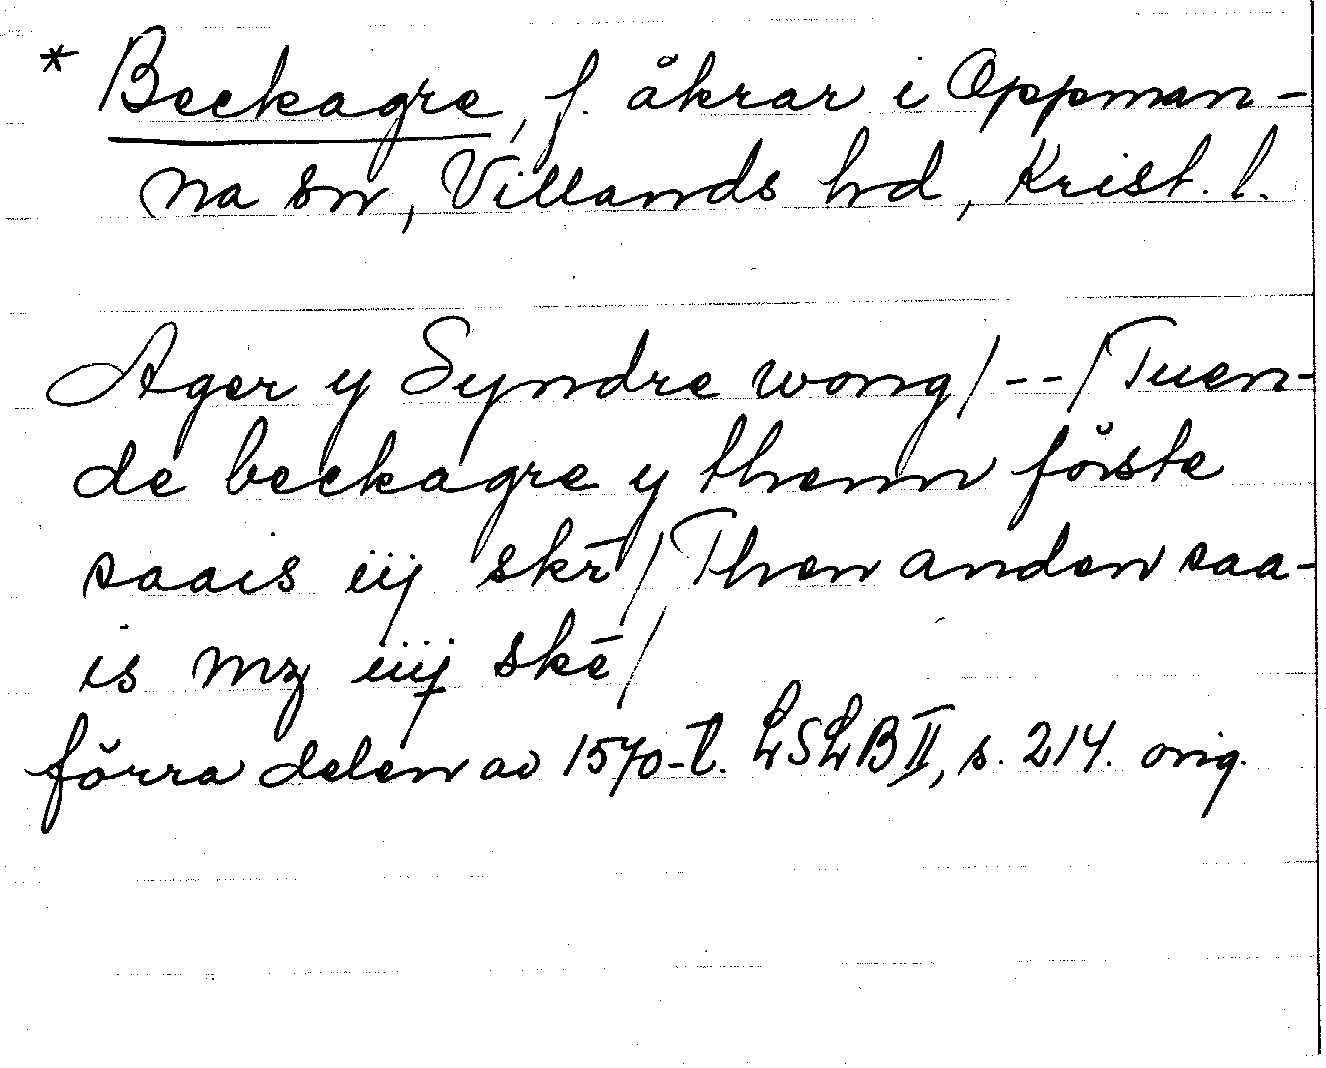 * Beckagre, f. åkrar i Oppman-
na sn, Villands hd, Krist. l.
Ager y Syndre wong/--/Tuen-
de beckagre y thenn förste
saais iij skē/Then anden saa-
is mz iiij skē/
förra delen av 1570-t. LSLB II, s. 214. orig.